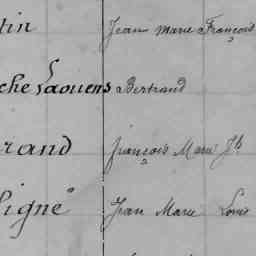 tin Jean Marie François
che Laouens Bertrand
rand François Marie Jh
ligné Jean Marie Louis